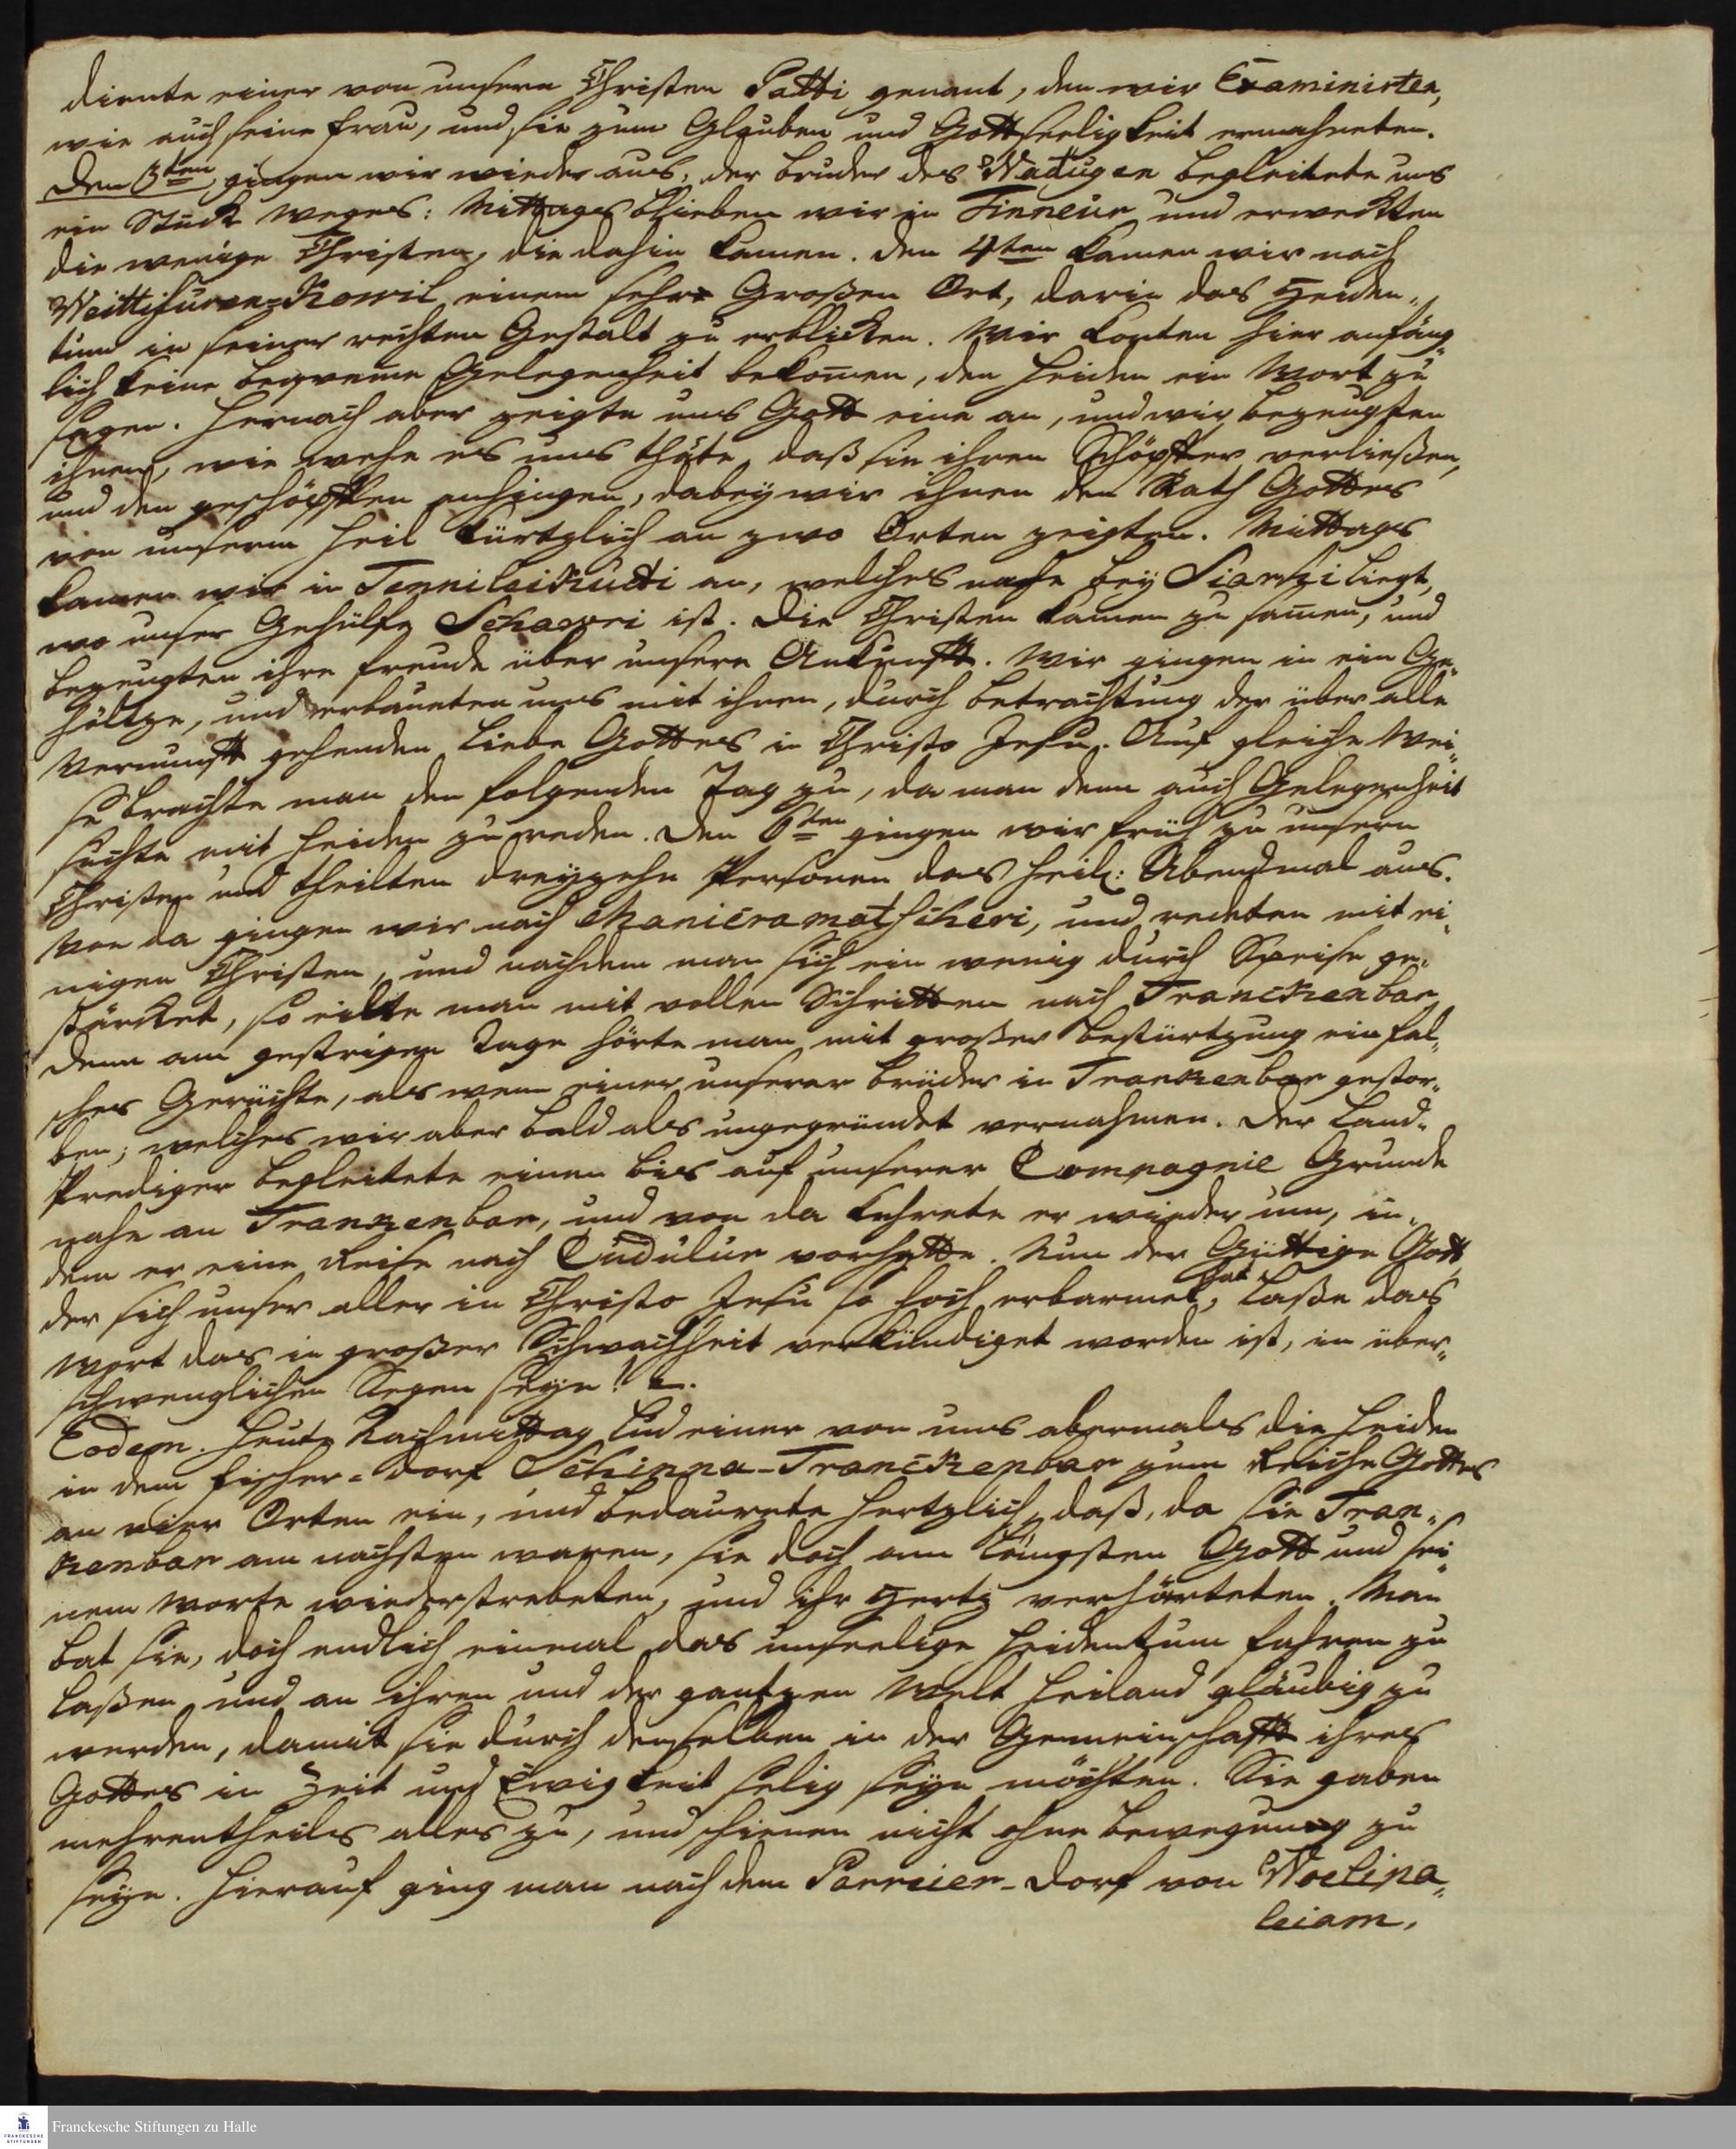 diente einer von unsern Christen Patti genant, den wir Examinirten,
wie auch seine Frau, und sie zum Glauben und Gottseeligkeit ermahneten.
Den 3ten gingen wir wieder aus, der Bruder des Watugen begleitete uns
ein Stück Weges: Mittags blieben wir in Tinneur und erweckten
die wenige Christen, die dahin kamen. Den 4ten kamen wir nach
Weittisuren-Kowil einem sehr Großen Ort, darin das Heiden-
tum in seiner rechten Gestalt zu erblicken. Wir konten hier anfäng-
lich keine bequeme Gelegenheit bekom̄en, den Heiden ein Wort zu
sagen. Hernach aber zeigte uns Gott eine an, und wir bezeugten
ihnen, wie wehe es uns thäte, daß sie ihren Schöpffer verließen,
und den geschöpffen anhingen, dabey wir ihnen den Rath Gottes
von unserm Heil kürtzlich an zwo Orten zeigten. Mittags
kamen wir in Tennileikudi an, welches nahe bey Siarhi liegt,
wo unser Gehülfe Schawri ist. Die Christen kamen zu sam̄en, und
bezeugten ihre Freude über unsere Ankunfft. Wir gingen in ein Ge-
höltze, und erbaueten uns mit ihnen, durch Betrachtung der über alle
Vernunfft gehenden Liebe Gottes in Christo Jesu. Auf gleiche Wei-
se brachte man den folgenden Tag zu, da man denn auch Gelegenheit
suchte mit Heiden zu reden. Den 6ten gingen wir früh zu unsern
Christen und theilten dreyzehn Personen das Heil: Abendmal aus.
Von da gingen wir nach Manicramatscheri, und redeten mit ei-
nigen Christen, und nachdem man sich ein wenig durch Speise ge-
stärcket, so eilte man mit vollen Schritten nach Tranckenbar
denn am gestrigen Tage hörte man mit großer Bestürtzung ein fal-
sches Gerüchte, als wenn einer unserer Brüder in Trankenbar gestor-
ben; welches wir aber bald als ungegründet vernahmen. Der Land-
Prediger begleitete einen bis auf unserer Compagnie Grunde
nahe an Trankenbar, und von da kehrete er wieder um, in-
dem er eine Reise nach Cudulur vorhatte. Nun der Güttige Gott,
der sich unser aller in Christo Jesu so hoch erbarmet hat, laße das
Wort das in großer Schwachheit verkündiget worden ist, in über-
schwenglichen Segen seyn!
Eodem. Heute Nachmittag lud einer von uns abermals die Heiden
in dem Fischer-Dorf Schinna-Tranckenbar zum Reiche Gottes
an vier Orten ein, und bedaurete hertzlich, daß, da sie Tran-
kenbar am nachsten waren, sie doch am längsten Gott und sei-
nem Worte wiederstrebeten, und ihr Hertz verhärteten. Man
bat sie, doch endlich einmal das unseelige Heidentum fahren zu
laßen, und an ihren und der gantzen Welt Heiland gläubig zu
werden, damit sie durch denselben in der Gemeinschafft ihres
Gottes in Zeit und Ewigkeit selig seyn möchten. Sie gaben
mehrentheils alles zu, und schienen nicht ohne Bewegung zu
seyn. Hierauf ging man nach dem Parreier-Dorf von Woelipa-
leiam.
Franckesche Stiftungen zu Halle
FRANCKESCHE
STIFTUNGEN